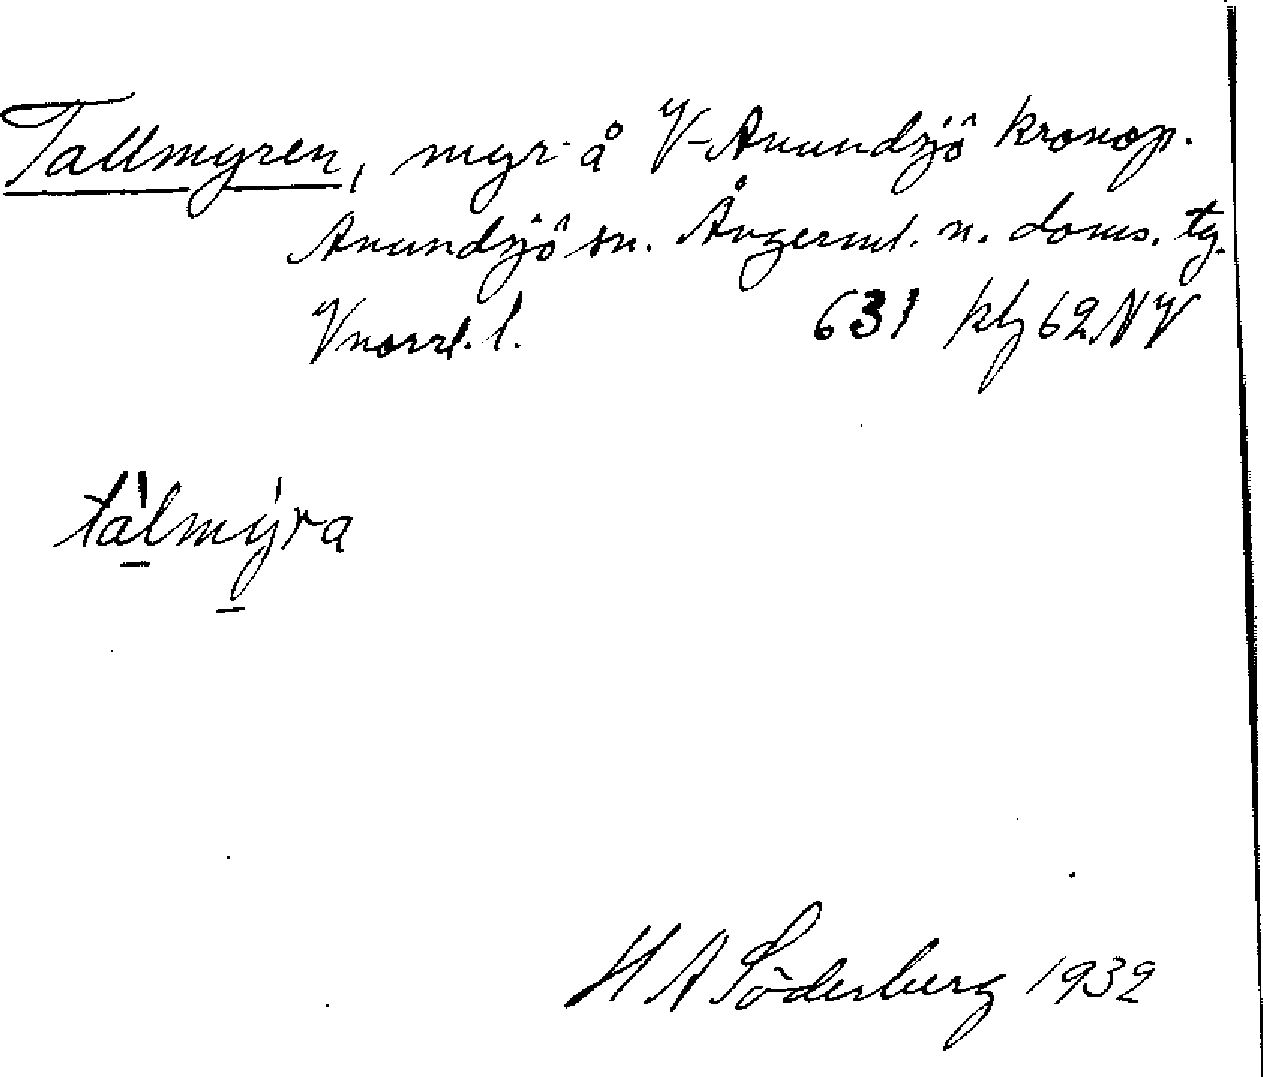 Tallmyren, myr å V-Anundsjö kronop.
Anundsjö sn. Ångerml. n. doms. tg.
Vnorrl. l. 631 kbl 62 NV
tàlmýra
H A Söderberg 1932